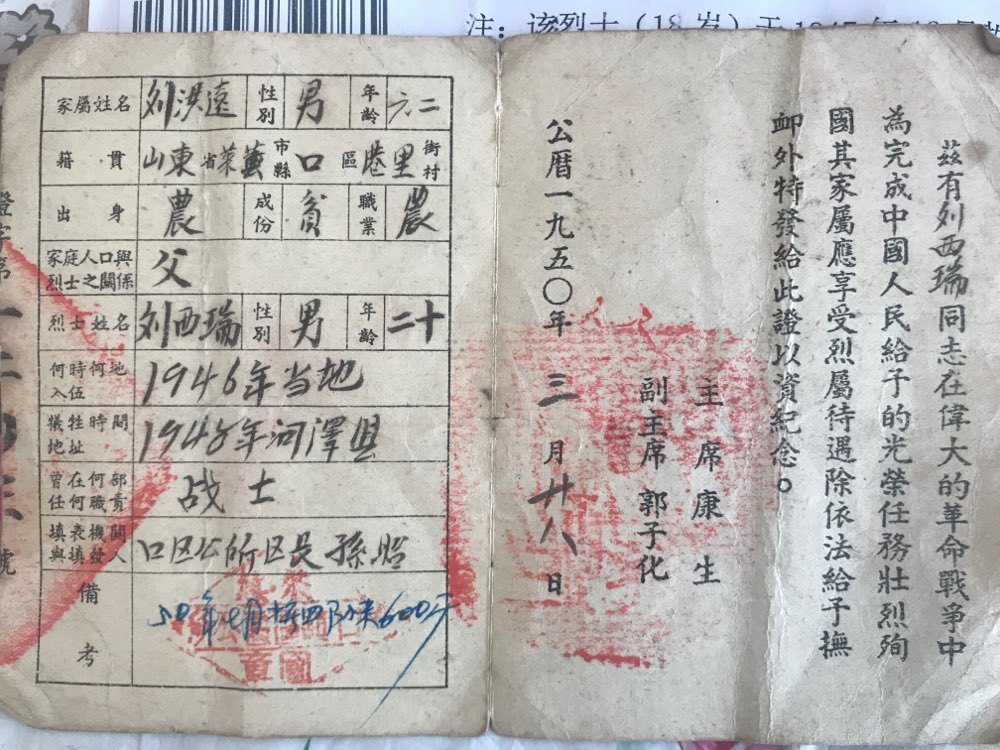 注：该烈士（18岁）于1947年12月
家屬姓名 刘洪遠 性別 男 年齡 六二
籍貫 山東省萊蕪市縣口區港里街村
出身 農 成份 貧 職業 農
家庭人口與烈士之關係 父
烈士姓名 刘西瑞 性別 男 年齡 二十
何時何地入伍 1946年当地
犠牲時間地址 1948年河澤县
曾在何部任何職責 战士
填表機關與填發人 口区公所区長孫
備考 50年 月 600斤
證字第一二 三號
茲有刘西瑞同志在偉大的革命戰爭中
為完成中國人民給予的光榮任務壯烈殉
國其家屬應享受烈屬待遇除依法給予撫
卹外特發給此證以資紀念。
主席康生
副主席郭子化
公曆一九五〇年三月廿八日